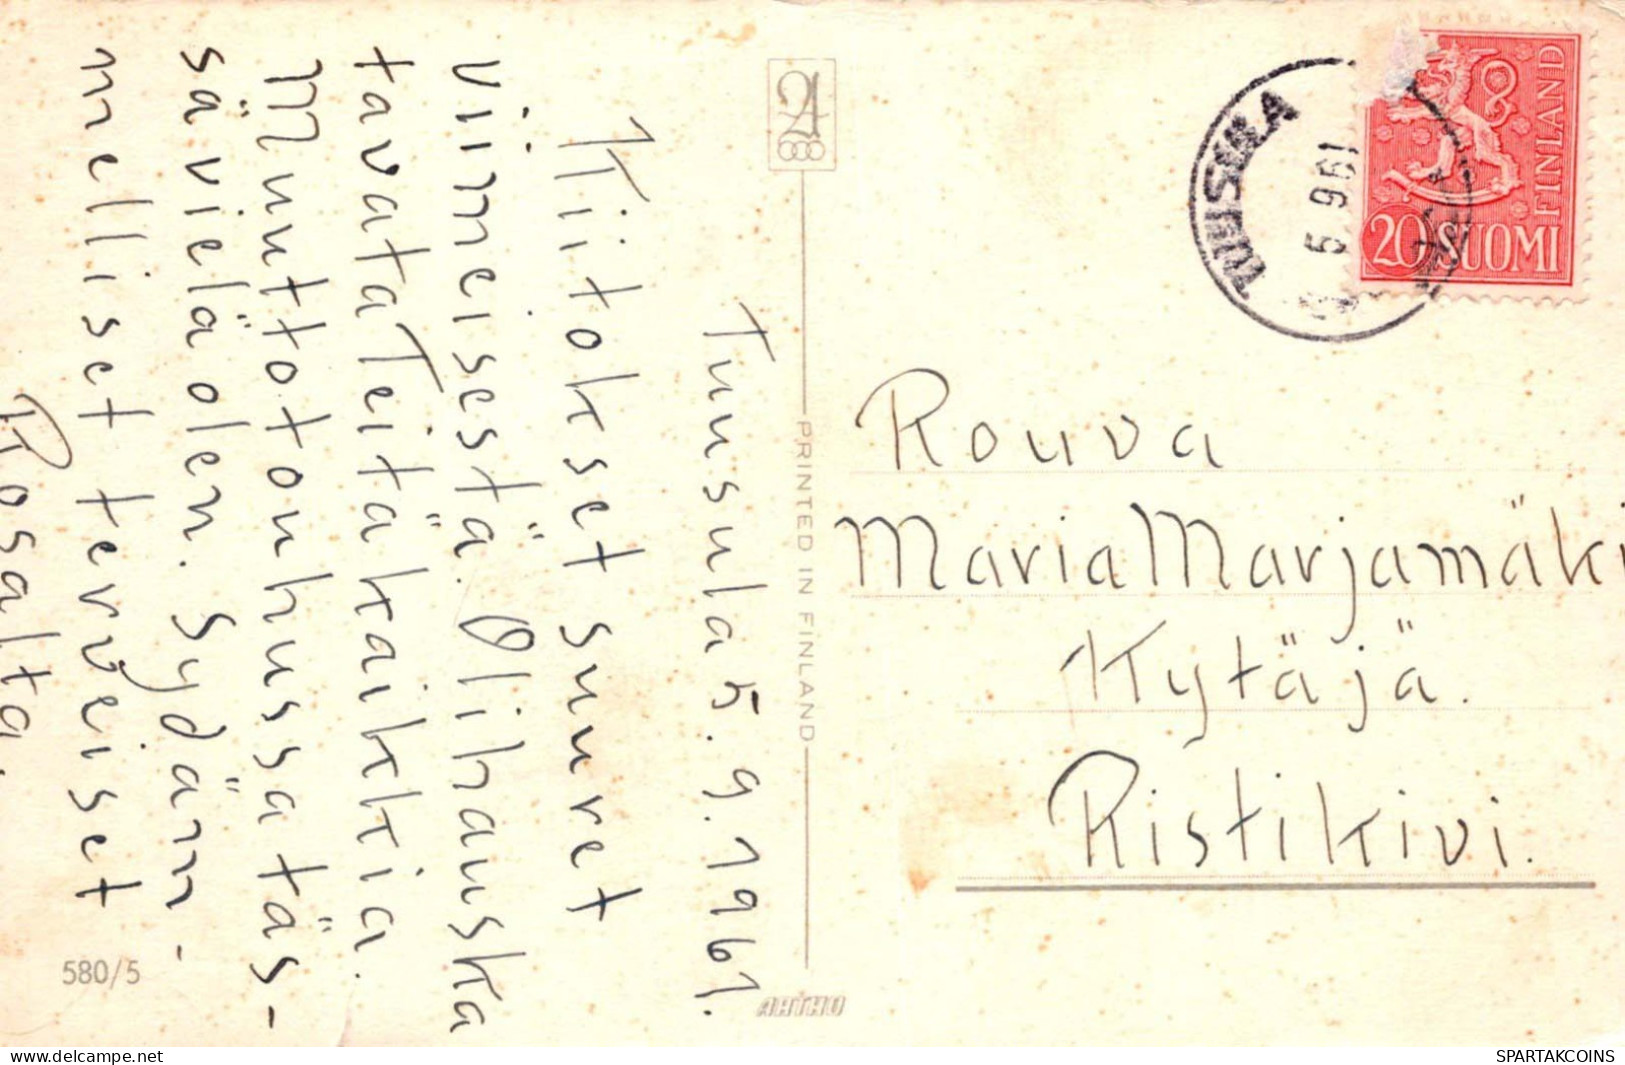 Tuusula 5.9.1961.
Kiitokset suuret
viimeisestä. Oli hauska
tavata Teitä kaikkia.
Muuttotonhussa täs-
sä vielä olen. Sydäm-
melliset terveiset
Rosalta.
580/5
PRINTED IN FINLAND
ARTHO
TUUSULA
5 9 61
20 SUOMI
FINLAND
Rouva
Maria Marjamäki
Kytäjä.
Ristikivi.
delcampe.net
SPARTAKCOINS